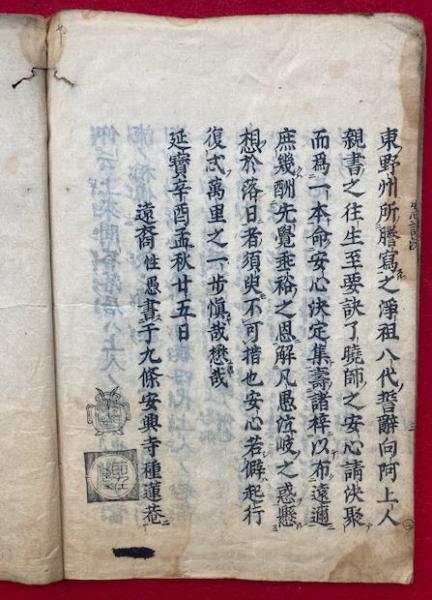 東野州所謄寫之淨祖八代誓辭向阿上人
親書之往生至要訣了曉師之安心請决聚
而爲一本命安心決定集壽諸梓以布遠邇
庶幾酬先覺垂裕之恩解凡愚泣岐之惑懸
想於落日者須臾不可措也安心若僻起行
復忒萬里之一步愼哉懋哉
延寶辛酉孟秋廿五日
遠裔性愚書于九條安興寺種蓮菴